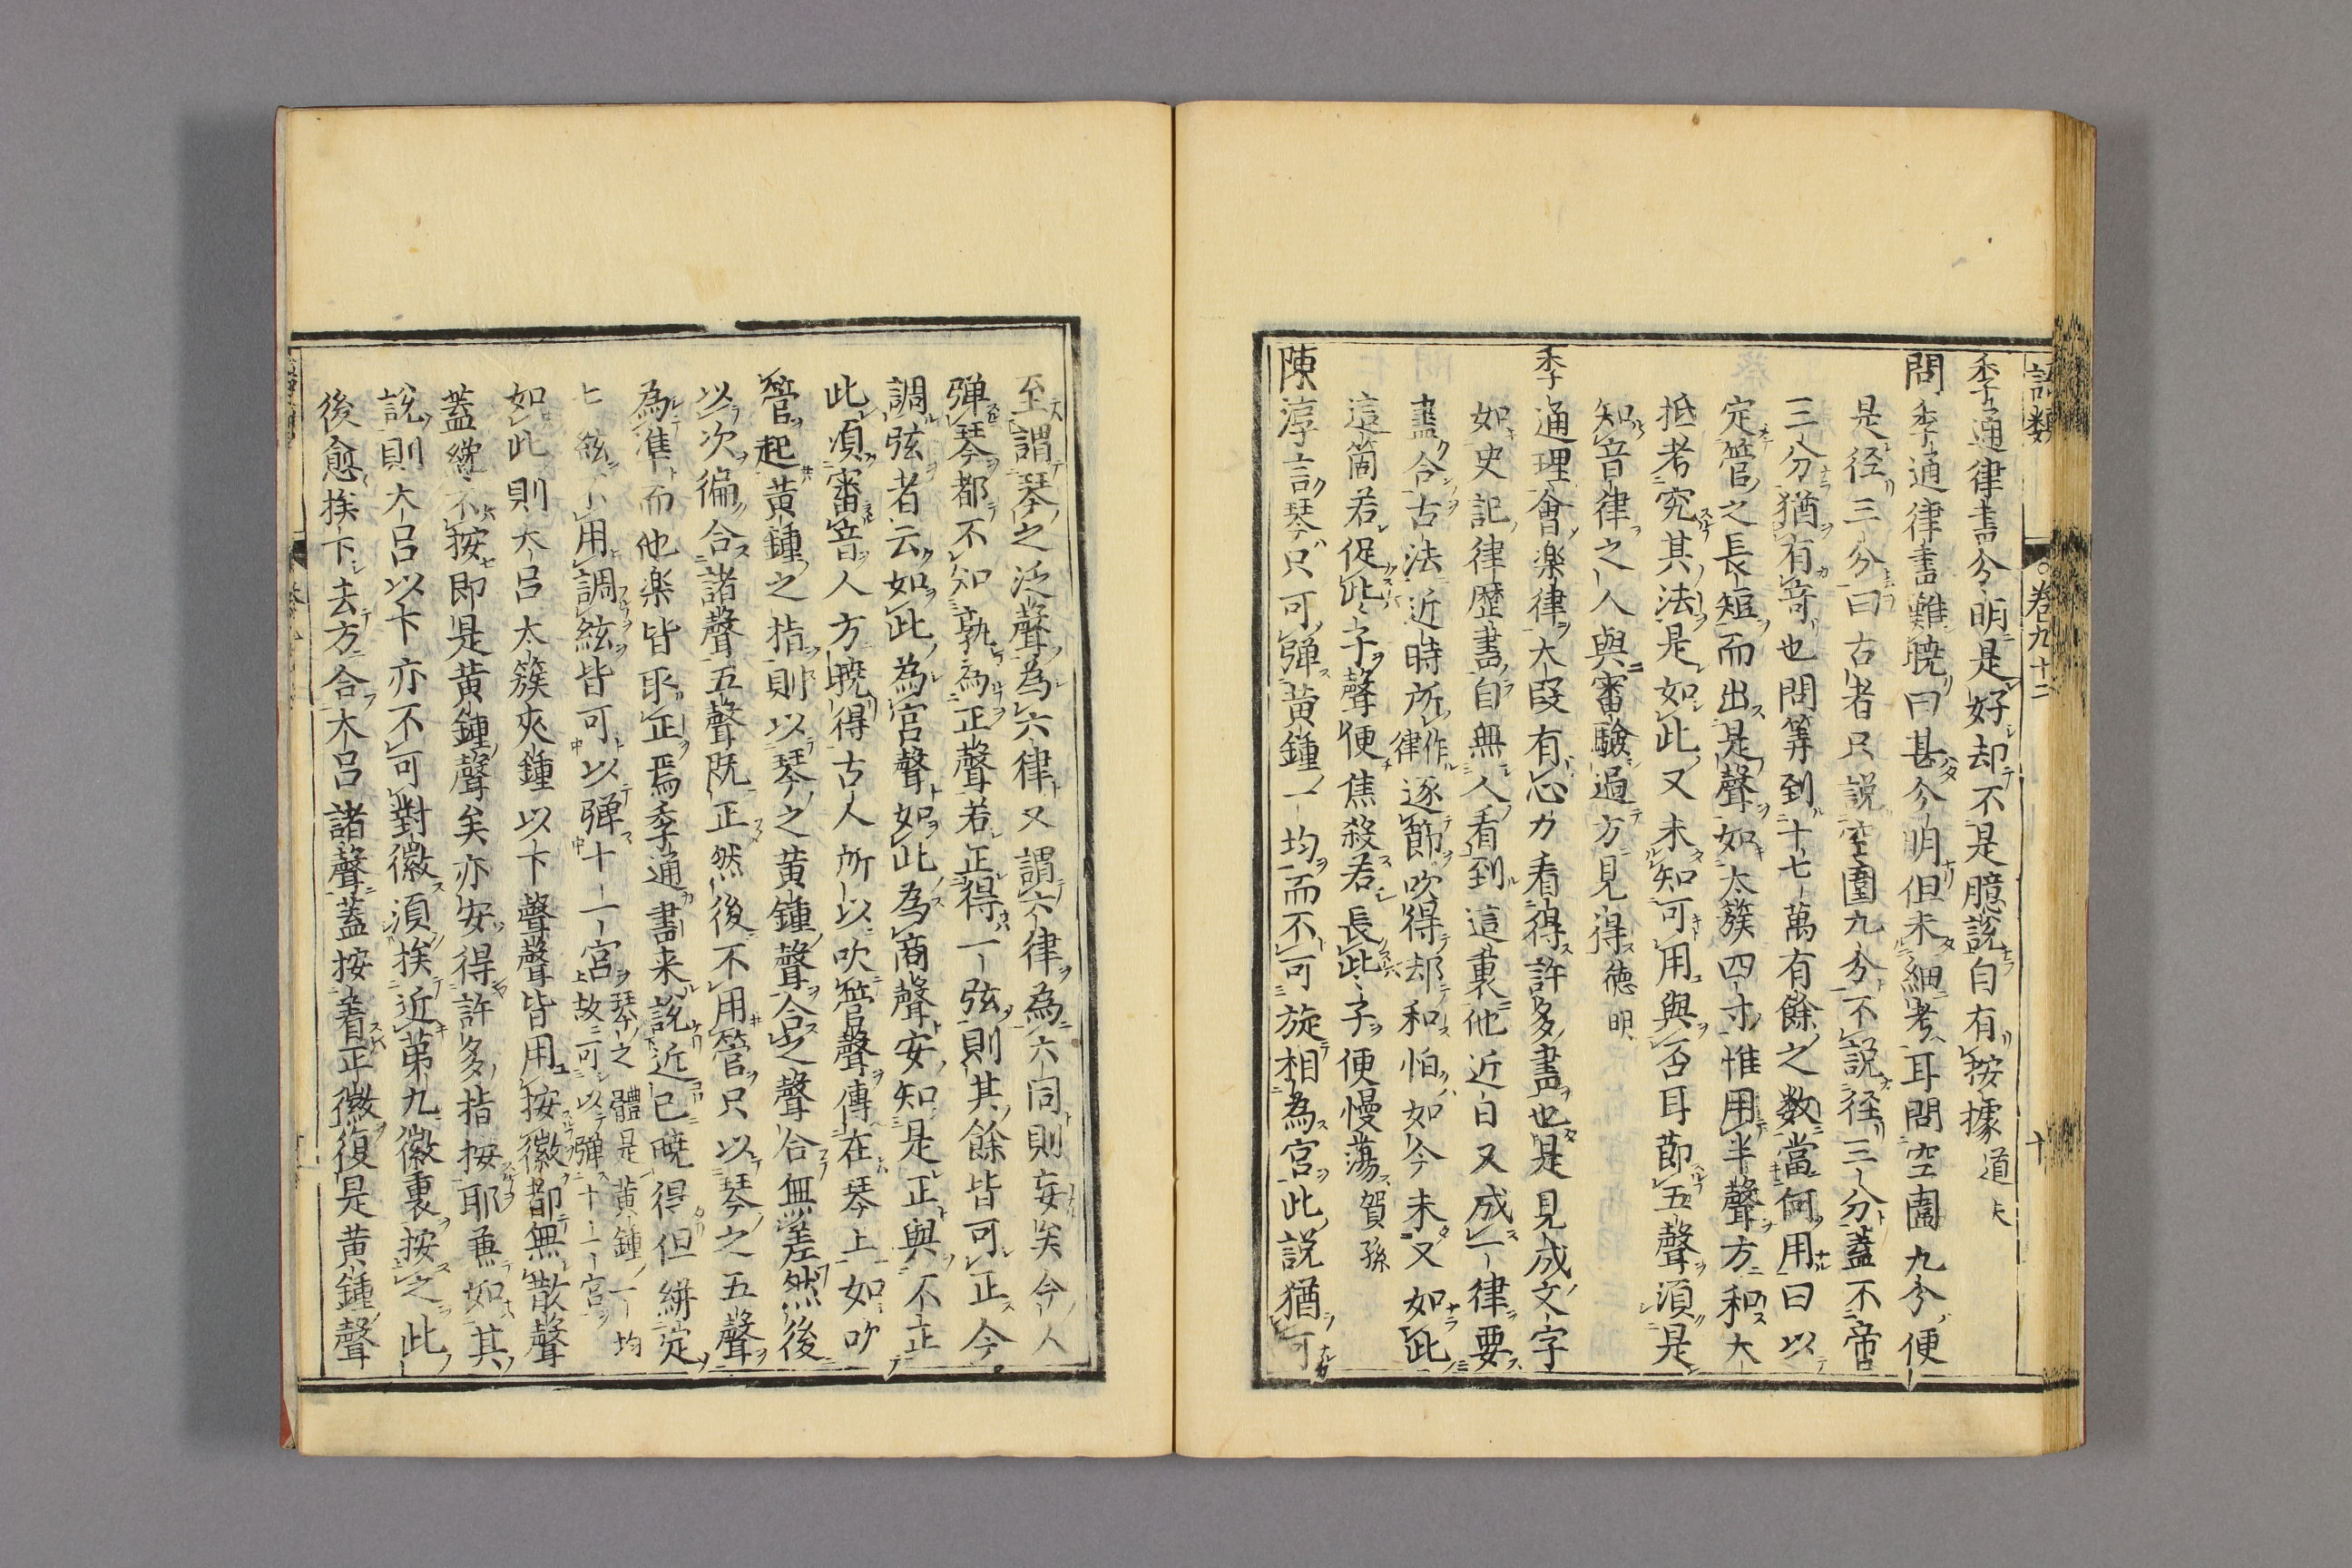 語類 卷九十二 十
季通律書分明是好却不是臆說自有按據道夫
問季通律書難曉曰甚分明但未細考耳問空圍九分便
是径三分曰古者只說空圍九分不說径三分蓋不啻
三分猶有竒也問筭到十七萬有餘之数當何用曰以
定管之長短而出是聲如太簇四寸惟用半聲方和大
抵考究其法是如此又未知可用與否耳節五聲須是
知音律之人與審驗過方見得德明
季通理會楽律大段有心力看得許多書也是見成文字
如史記律歷書自無人看到這裏他近日又成一律要
盡合古法近時所作律逐節吹得却和怕如今未又如此
這箇若促些子聲便焦殺若長些子便慢蕩賀孫
陳淳言琴只可弾黃鍾一均而不可旋相為宮此說猶可
至謂琴之泛聲為六律又謂六律為六同則妄矣今人
弾琴都不知孰為正聲若正得一弦則其餘皆可正今
調弦者云如此為宮聲如此為商聲安知是正與不正
此須審音人方曉得古人所以吹管聲傳在琴上如吹
管起黃鍾之指則以琴之黃鍾聲合之聲合無差然後
以次徧合諸聲五聲既正然後不用管只以琴之五聲
為準而他楽皆取正焉季通書来說近已曉得但絣定
七絃不用調絃皆可以弾十一宮琴之體是黃鍾一均故可以弾十一宮
如此則大呂太簇夾鍾以下聲聲皆用按徽都無散聲
蓋纔不按即是黃鍾聲矣亦安得許多指按耶兼如其
說則大呂以下亦不可對徽須挨近第九徽裏按之此
後愈挨下去方合大呂諸聲蓋按着正徽復是黃鍾聲